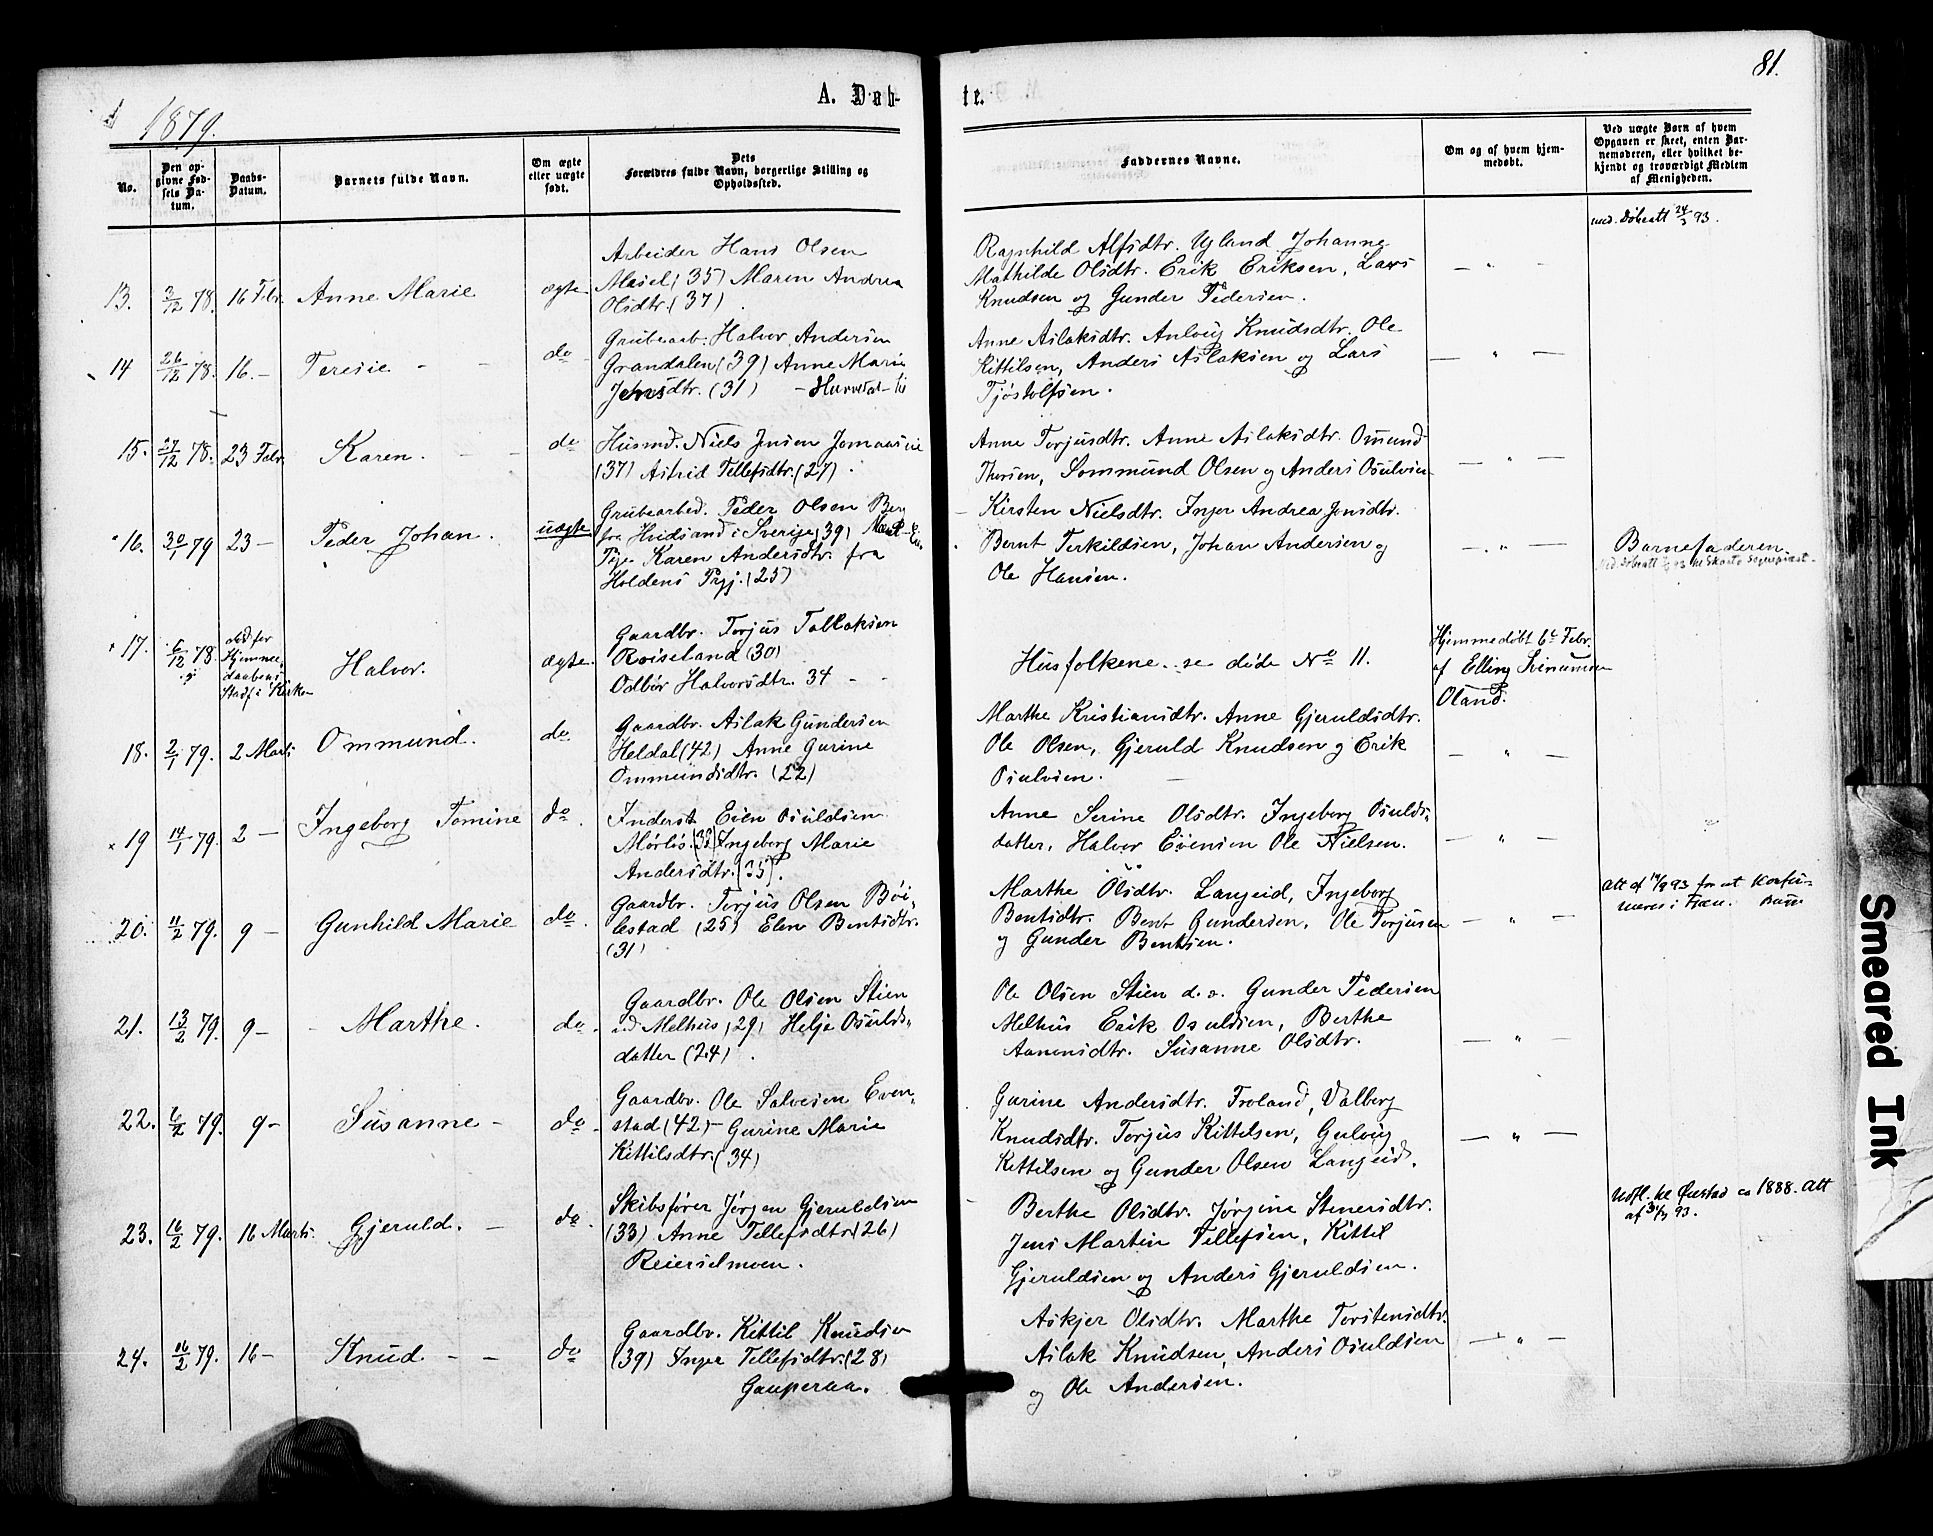 81.
1879.
A. Døb-
te.
No.
Den op-
givne Fød-
sels Da-
tum.
Daabs-
Datum.
Barnets fulde Navn.
Om ægte
eller uægte
født.
Dets
Forældres fulde Navn, borgerlige Stilling og
Opholdssted.
Faddernes Navne.
Om og af hvem hjem-
medøbt.
Ved uægte Børn af hvem
Opgaven er skeet, enten Bar-
nemoderen, eller hvilket be-
kjendt og troværdigt Medlem
af Menigheden.
13. 3/12 78. 16 Febr. Anne Marie ægte
Arbeider Hans Olsen
Mesel (35) Maren Andrea
Olsdtr. (37).
Ragnhild Alfsdtr. Ugland Johanne
Mathilde Olsdtr. Erik Eriksen, Lars
Knudsen og Gunder Pedersen.
— " —
14 26/12 78. 16.- Teresie - - do
Grubearb. Halvor Andersen
Grandalen (39) Anne Marie
Jensdtr. (31)
Anne Aslaksdtr. Anlaug Knudsdtr. Ole
Kittilsen, Anders Aslaksen og Lars
Tjøstolfsen.
— " —
15. 27/12 78. 23 Febr. Karen. - - do
Husmd. Niels Jensen Jomaasvie
(37) Astrid Tellefsdtr. (27).
Anne Torjusdtr. Anne Aslaksdtr. Omund
Thorsen, Sommund Olsen og Anders Osulvsen
— " —
16. 30/1 79 23 — Peder Johan. uægte
Grubearbed. Peder Olsen Berg
fra Hvidsand i Sverige (39)
Pige Karen Andersdtr. fra
Holdens Prgj. (25)
Kirsten Nielsdtr. Inger Andrea Jensdtr.
Bernt Terkildsen, Johan Andersen og
Ole Hansen.
— " —
Barnefaderen.
17. 6/12 78.
død før
Hjemme-
daabens
Stadf. i Kirken
Halvor. ægte.
Gaardbr. Torjus Tallaksen
Røiseland (30)
Odbør Halvorsdtr. 34 - -
Husfolkene. se døde No 11.
Hjemmedøbt 6te Febr.
af Elling Svenumsen
Oland.
18. 2/1 79. 2 Marts Ommund. do
Gaardbr. Aslak Gundersen
Heldal (42) Anne Gurine
Ommundsdtr. (22)
Marthe Kristiansdtr. Anne Gjeruldsdtr.
Ole Olsen, Gjeruld Knudsen og Erik
Osulvsen.
— " —
19 14/1 79. 2 — Ingeborg Tomine do.
Inderst Even Osuldsen
Mørlös. (32) Ingeborg Marie
Andersdtr. (35).
Anne Serine Olsdtr. Ingeborg Osulds-
datter, Halvor Evensen Ole Nielsen.
— " —
20. 11/2 79. 9 — Gunhild Marie do.
Gaardbr. Torjus Olsen Bøi-
lestad (25) Elen Bentsdtr.
(31)
Marthe Olsdtr. Langeid, Ingeborg
Bentsdtr. Bent Gundersen, Ole Torjusen
og Gunder Bentsen.
— " —
21. 13/2 79. 9 — Marthe. do.
Gaardbr. Ole Olsen Stien
ud Melhus (29) Helje Osulds-
datter (24).
Ole Olsen Stien d.æ. Gunder Pedersen
Melhus Erik Osuldsen, Berthe
Aanensdtr. Susanne Olsdtr.
— " —
22. 6/2 79. 9 - Susanne - do.
Gaardbr. Ole Salvesen Even-
stad (42) - Gurine Marie
Kittilsdtr. (34)
Gurine Andersdtr. Froland, Valborg
Knudsdtr. Torjus Kittelsen, Gulvig
Kettilsen og Gunder Olsen Langeid.
— " —
23. 16/2 79. 16 Marts. Gjeruld. - do.
Skibsfører Jørgen Gjeruldsen
(33) Anne Tellefsdtr. (26)
Reierselmoen.
Berthe Olsdtr. Jørgine Stenersdtr.
Jens Martin Tellefsen, Kittel
Gjeruldsen og Anders Gjeruldsen.
Udfl. til Øiestad ca 1888. Att
24. 16/2 79. 16 - Knud - - do
Gaardbr. Kittil Knudsen
(39) Inger Tellefsdtr. (28)
Gauperaa.
Askjer Olsdtr. Marthe Torstensdtr.
Aslak Knudsen, Anders Osuldsen
og Ole Andersen.
— " —
med. Døbeatt 24/3 93.
Smeared Ink